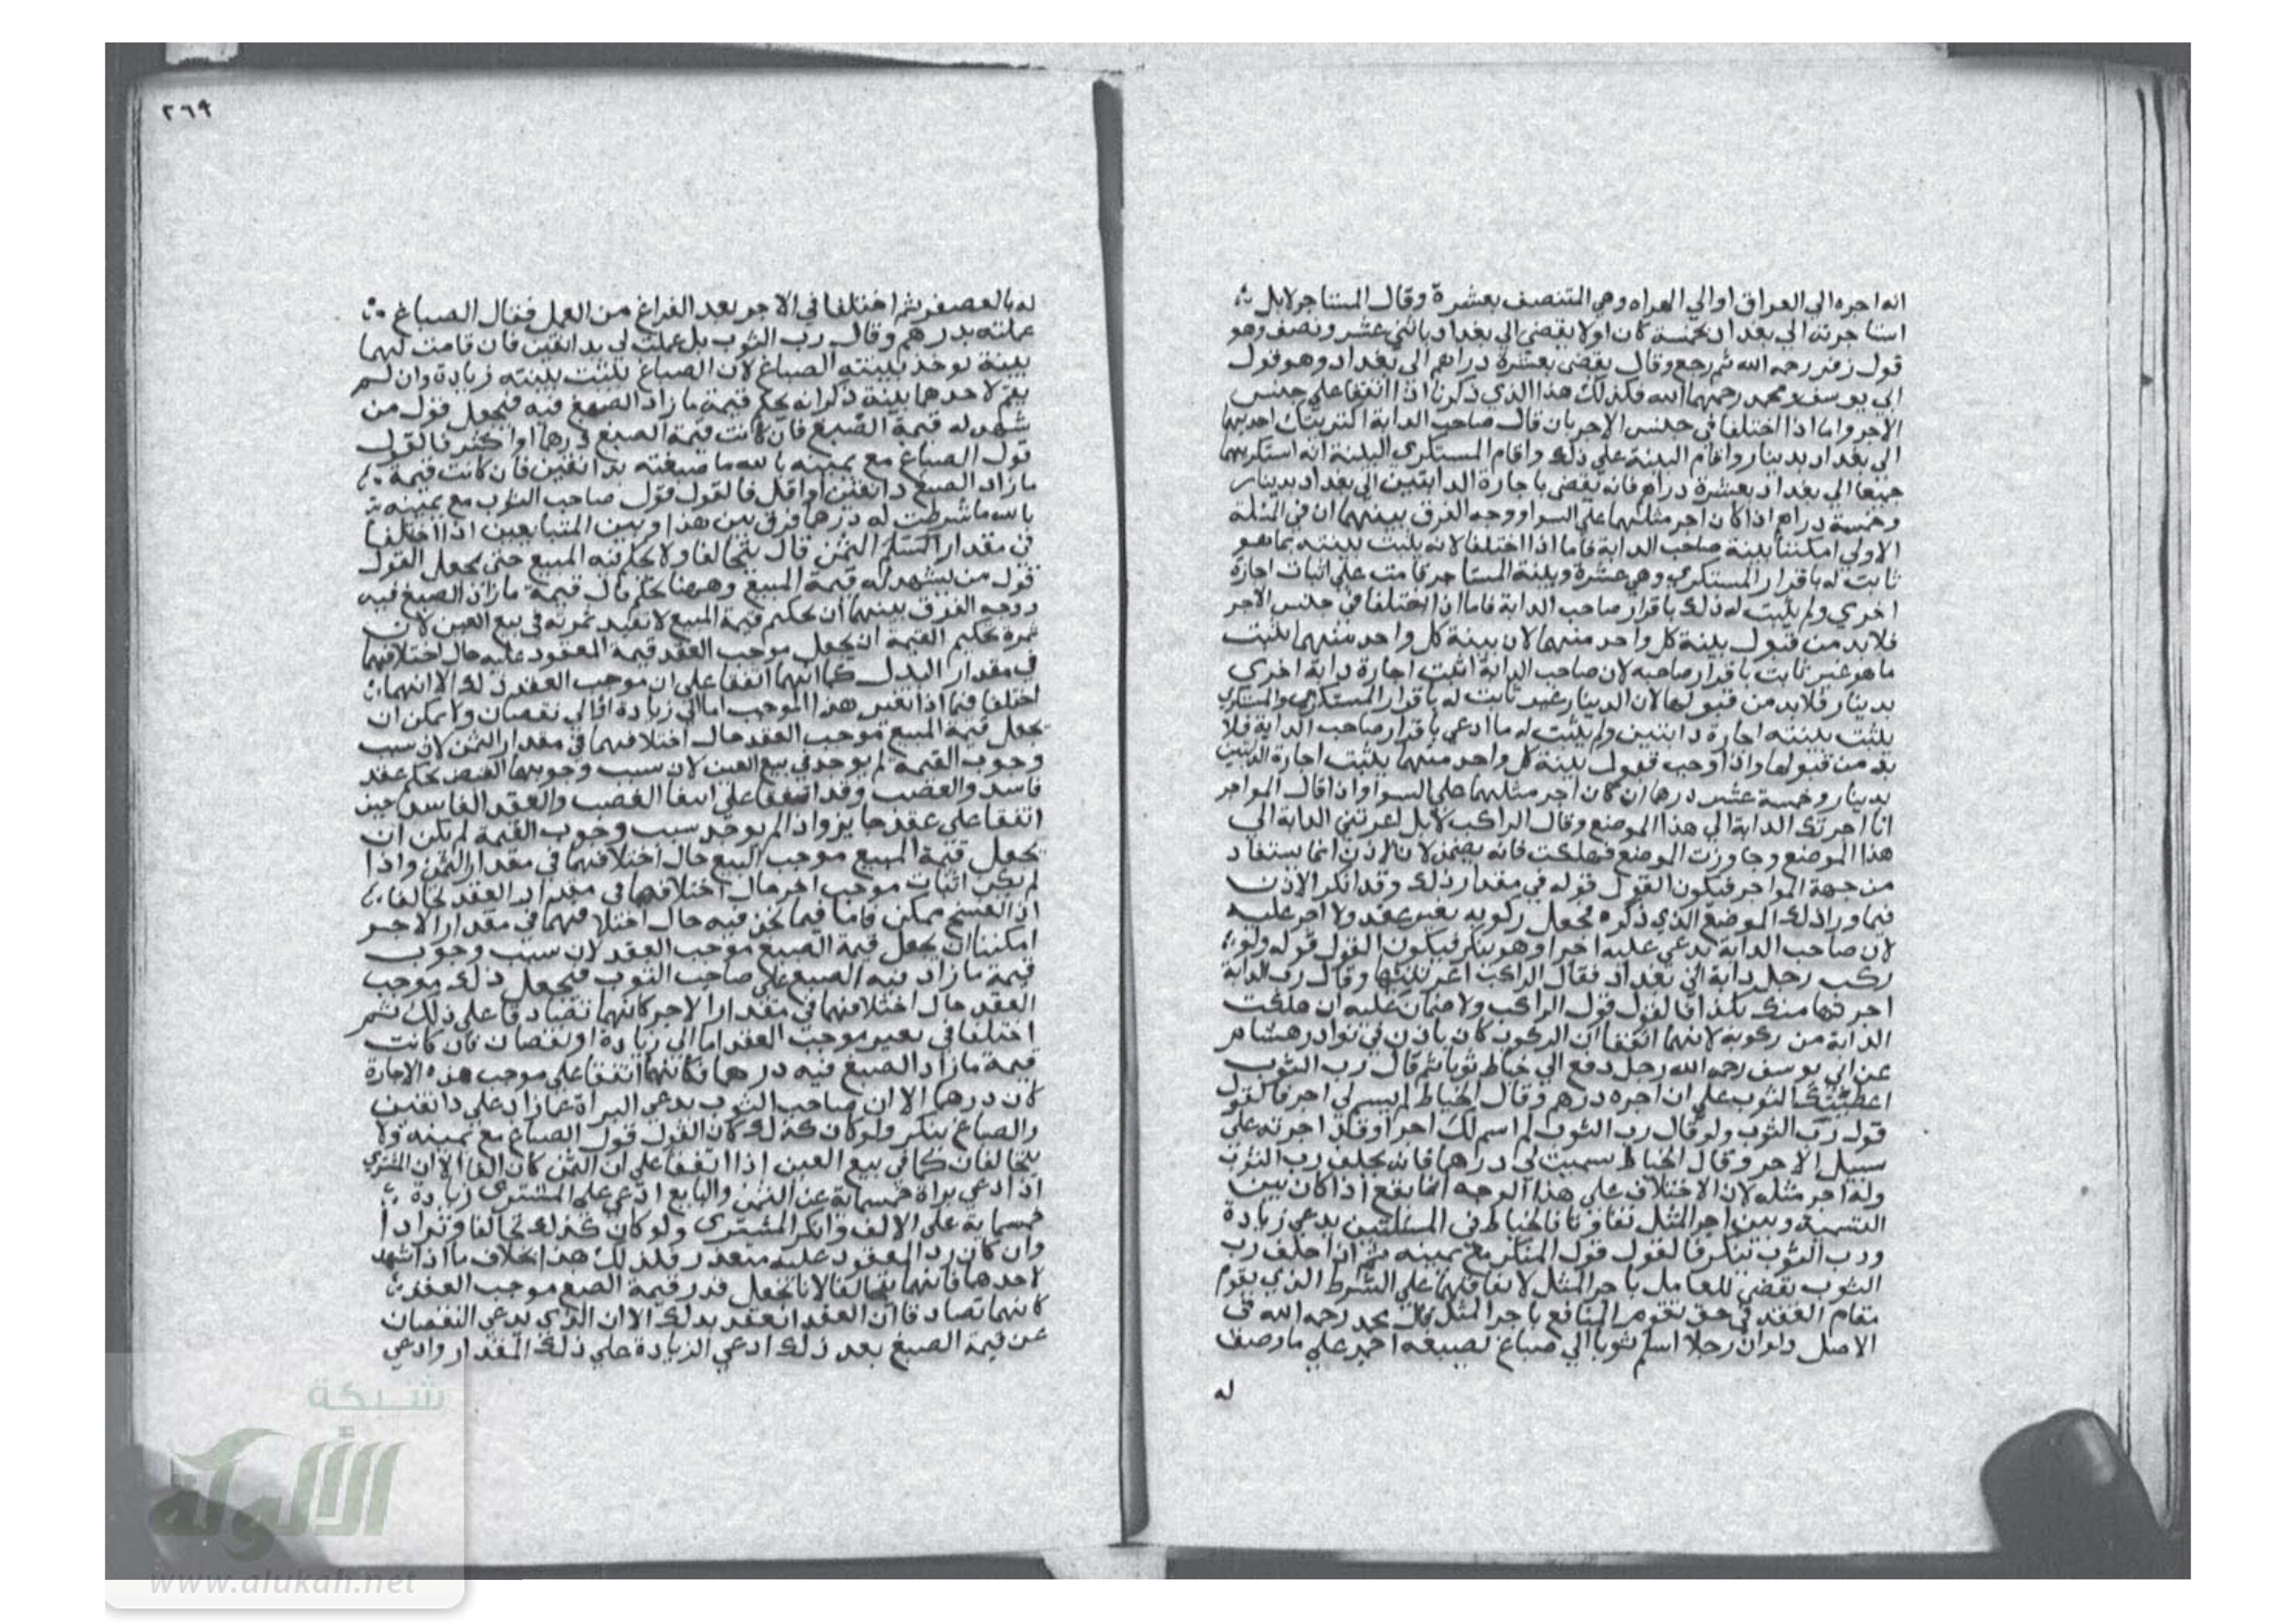 انه اجره الي العراق اوالي الهراه وهي المتنصف بعشرة وقال المستاجر لا بل
استاجرته الي بغداد بخمسة كان اولا يقضي الي بغداد باثني عشر ونصف وهو
قول زفر رحمه الله ثم رجع وقال يقضي بعشرة دراهم الى بغداد وهو قول
ابي يوسف ومحمد رحمهما الله فكذلك هذا الذي ذكرنا اذا اتفقا علي جنس
الاجر واما اذا اختلفا في جنس الاجر بان قال صاحب الدابة اكتريتك احديهما
الى بغداد بدينار واقام البينة علي ذلك واقام المستكري البينة انه استكريهما
جميعا الي بغداد بعشرة دراهم فانه يقضي باجارة الدابتين الي بغداد بدينار
وخمسة دراهم اذا كان اجر مثليهما علي السوا ووجه الفرق بينهما ان في المسئلة
الاولي بينة صاحب الدابة فاما اذا اختلفا لانه يثبت ببينته بما هو
ثابت له باقرار المستكري وهي عشرة وبينة المستاجر قامت علي اثبات اجارة
اخري ولم يثبت له ذلك باقرار صاحب الدابة فاما اذا اختلفا في جنس الاجر
فلا بد من قبول بينة كل واحد منهما لان بينة كل واحد منهما يثبت
ما هو غير ثابت باقرار صاحبه لان صاحب الدابة اثبت اجارة دابة اخري
بدينار فلا بد من قبولها لان الدينار غير ثابت له باقرار المستكري والمستكري
يثبت ببينته اجارة دابتين ولم يثبت له ما ادعي باقرار صاحب الدابة فلا
بد من قبولها واذا وجب قبول بينة كل واحد منهما يثبت اجارة الدابتين
بدينار وخمسة عشر درهما ان كان اجر مثليهما علي السوا واذا قال المواجر
انا اجرتك الدابة الي هذا الموضع وقال الراكب لا بل اعرتني الدابة الي
هذا الموضع وجاوزت الموضع فهلكت فانه يضمن لان الاذن انما يستفاد
من جهة المواجر فيكون القول قوله في مقدار ذلك وقد انكر الاذن
فيما ورا ذلك الموضع الذي ذكره فجعل ركوبه بغير عقد ولا اجر عليه
لان صاحب الدابة يدعي عليه اجرا وهو ينكر فيكون القول قوله ولو
ركب رجل دابة الي بغداد فقال الراكب اعرتنيها وقال رب الدابة
اجرتها منك بكذا فالقول قول الراكب ولا ضمان عليه ان هلكت
الدابة من ركوبه لانهما اتفقا ان الركوب كان باذن في نوادر هشام
عن ابي يوسف رحمه الله رجل دفع الي خياط ثوبا ثم قال رب الثوب
اعطيتك الثوب علي ان اجره درهم وقال الخياط لم يسم لي اجرا فالقول
قول رب الثوب ولو قال رب الثوب لم اسم لك اجرا وقد اجرته علي
سبيل الاجر وقال الخياط سميت لي درهما فانه يحلف رب الثوب
وله اجر مثله لان الاختلاف علي هذا الوجه انما يقع اذا كان بين
التسمية وبين اجر المثل تفاوتا فالخياط في المسئلتين يدعي زيادة
ورب الثوب ينكر فالقول قول المنكر مع يمينه ثم اذا حلف رب
الثوب يقضي للعامل باجر المثل لاتفاقهما علي الشرط الذي يقوم
مقام العقد في حق تقوم المنافع باجر المثل قال محمد رحمه الله في
الاصل ولو ان رجلا اسلم ثوبا الي صباغ ليصبغه احمر علي ما وصف
له
٢٦٩
له بالعصفر ثم اختلفا في الاجر بعد الفراغ من العمل فقال الصباغ
عملته بدرهم وقال رب الثوب بل عملت لي بدانقين فان قامت لهما
بينة يوخذ ببينة الصباغ لان الصباغ يثبت ببينته زيادة وان لم
يقم لاحدهما بينة ذكر انه يحكم قيمة ما زاد الصبغ فيه فيجعل قول من
شهد له قيمة الصبغ فان كانت قيمة الصبغ درهما او اكثر فالقول
قول الصباغ مع يمينه بالله ما صبغته بدانقين فان كانت قيمة
ما زاد الصبغ دانقين او اقل فالقول قول صاحب الثوب مع يمينه
بالله ما شرطت له درهما فرق بين هذا وبين المتبايعين اذا اختلفا
في مقدار الثمن قال يتحالفا ولا يحكم فيه المبيع حتى يجعل القول
قول من يشهد له قيمة المبيع وههنا يحكم قال قيمة ما زاد الصبغ فيه
ووجه الفرق بينهما ان تحكيم قيمة المبيع لا تفيد ثمرته في بيع العين لان
ثمرة تحكيم القيمة ان يجعل موجب العقد قيمة المعقود عليه حال اختلافهما
في مقدار البدل كما انهما اتفقا علي ان موجب العقد ذلك الا انهما
اختلفا فيما اذا تغير هذا الموجب اما الي زيادة او الي نقصان ولا يمكن ان
يجعل قيمة المبيع موجب العقد حال اختلافهما في مقدار الثمن لان سبب
وجوب القيمة لم يوجد في بيع العين لان سبب وجوبها القبض بحكم عقد
فاسد والغصب وقد اتفقا علي انتفا الغصب والعقد الفاسد حين
اتفقا علي عقد جايز واذا لم يوجد سبب وجوب القيمة لم يمكن ان
يجعل قيمة المبيع موجب البيع حال اختلافهما في مقدار الثمن واذا
لم يكن اثبات موجب اخر حال اختلافهما في مقدار العقد تحالفا
اذ الفسخ ممكن فاما فيما نحن فيه حال اختلافهما في مقدار الاجر
امكننا ان يجعل قيمة الصبغ موجب العقد لان سبب وجوب
قيمة ما زاد فيه الصبغ علي صاحب الثوب فيجعل ذلك موجب
العقد حال اختلافهما في مقدار الاجر كانهما تصادقا علي ذلك ثم
اختلفا في تغير موجب العقد اما الي زيادة او نقصان فان كانت
قيمة ما زاد الصبغ فيه درهما فكانهما اتفقا علي موجب هذه الاجارة
كان درهما الا ان صاحب الثوب يدعي البراة عما زاد علي دانقين
والصباغ ينكر ولو كان كذلك كان القول قول الصباغ مع يمينه ولا
يتحالفان كما في بيع العين اذا اتفقا علي ان الثمن كان الفا الا ان المشتري
اذا ادعي براة خمسماية عن الثمن والبايع ادعي علي المشتري زيادة
خمسماية علي الالف وانكر المشتري ولو كان كذلك تحالفا وترادا
وان كان رد المعقود عليه متعذر فلذلك هذا بخلاف ما اذا شهد
لاحدهما فانهما يتحالفا لانا نجعل قدر قيمة الصبغ موجب العقد
كانهما تصادقا ان العقد انعقد بذلك الا ان الذي يدعي النقصان
عن قيمة الصبغ بعد ذلك ادعي الزيادة علي ذلك المقدار وادعي
شبكة
الألوكة
www.alukah.net